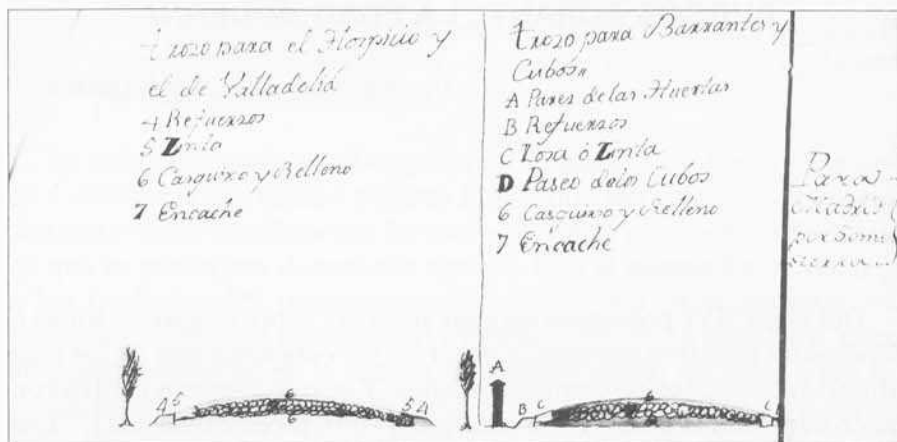 trozo para el Hospicio y
el de Valladolid
4 Refuerzos
5 Zinta
6 Casquixo y Relleno
7 Encache
4 5 6 6 5 4
trozo para Barrantes y
Cubos
A Pared de las Huertas
B Refuerzos
C Losa ó Zinta
D Paseo de los Cubos
6 Casquixo y Relleno
7 Encache
A B C 6 6 C
Para
Madrid
por Somo
sierra